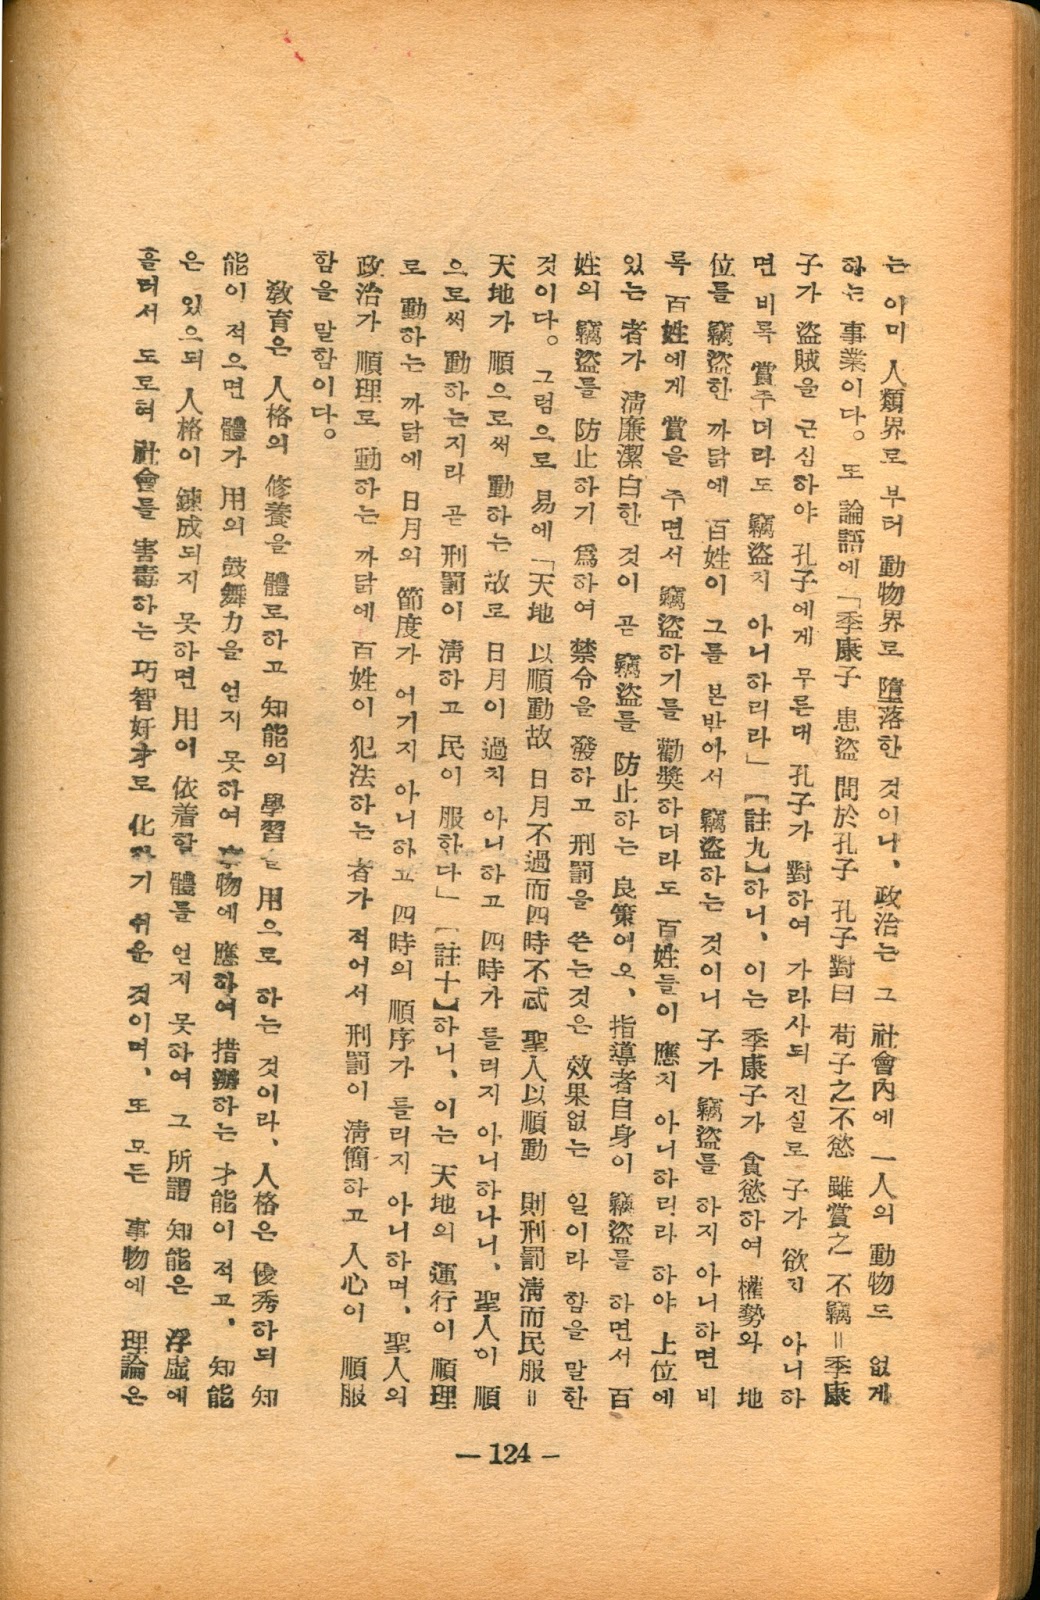 는 이미 人類界로 부터 動物界로 墮落한 것이니、政治는 그 社會內에 一人의 動物도 없게
하는 事業이다。 또 論語에「季康子 患盜 問於孔子 孔子對曰 苟子之不慾 雖賞之 不竊＝季康
子가 盜賊을 근심하야 孔子에게 무른대 孔子가 對하여 가라사되 진실로 子가 欲지 아니하
면 비록 賞주더라도 竊盜치 아니하리라」【註九】하니、이는 季康子가 貪慾하여 權勢와 地
位를 竊盜한 까닭에 百姓이 그를 본받아서 竊盜하는 것이니 子가 竊盜를 하지 아니하면 비
록 百姓에게 賞을 주면서 竊盜하기를 勸奬하더라도 百姓들이 應치 아니하리라 하야 上位에
있는 者가 淸廉潔白한 것이 곧 竊盜를 防止하는 良策이오、指導者自身이 竊盜를 하면서 百
姓의 竊盜를 防止하기 爲하여 禁令을 發하고 刑罰을 쓴는것은 效果없는 일이라 함을 말한
것이다。 그럼으로 易에「天地 以順動故 日月不過而四時不忒 聖人以順動 則刑罰淸而民服＝
天地가 順으로써 動하는 故로 日月이 過치 아니하고 四時가 틀러지 아니하나니、聖人이 順
으로써 動하는지라 곧 刑罰이 淸하고 民이 服한다」【註十】하니、이는 天地의 運行이 順理
로 動하는 까닭에 日月의 節度가 어기지 아니하고 四時의 順序가 틀리지 아니하며、聖人의
政治가 順理로 動하는 까닭에 百姓이 犯法하는 者가 적어서 刑罰이 淸簡하고 人心이 順服
함을 말함이다。
敎育은 人格의 修養을 體로하고 知能의 學習을 用으로 하는 것이라、人格은 優秀하되 知
能이 적으면 體가 用의 鼓舞力을 얻지 못하여 事物에 應하여 措辦하는 才能이 적고、知能
은 있으되 人格이 鍊成되지 못하면 用이 依着할 體를 얻지 못하여 그 所謂 知能은 浮虛에
흘러서 도로혀 社會를 害毒하는 巧智奸才로 化하기 쉬운 것이며、또 모든 事物에 理論은
— 124 —